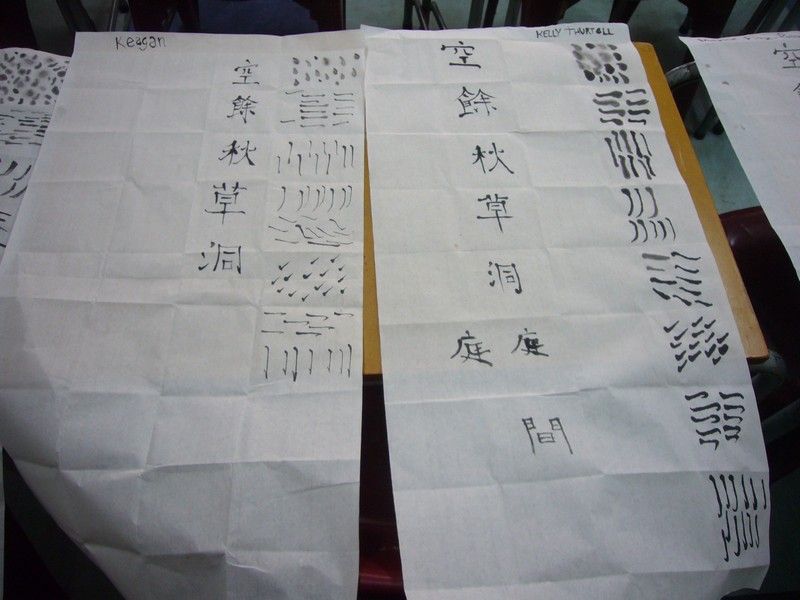 Keagan
空
餘
秋
草
洞
KELLY THURTELL
空
餘
秋
草
洞
庭 庭
間
空